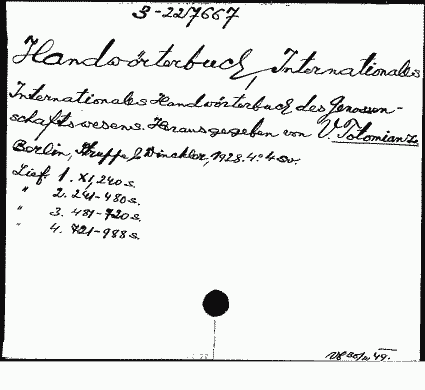 S-227667
Handwörterbuch, Internationales
Internationales Handwörterbuch des Genossen-
schaftswesens. Herausgegeben von V. Totomianz.
Berlin, Struppe & Winckler, 1928. 4° 4 sv.
Lief. 1. XI, 240 s.
" 2. 241-480 s.
" 3. 481-720 s.
" 4. 721-988 s.
49.